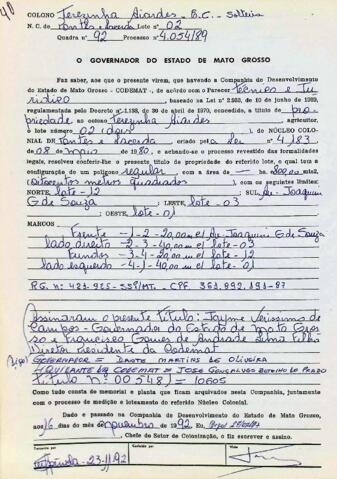 COLONO Terezinha Aiardes - B.C. - Solteira
N. C. de Pontes e Lacerda Lote nº 02
Quadra nº 92 Processo nº 4.054/89
O GOVERNADOR DO ESTADO DE MATO GROSSO
Faz saber, aos que o presente virem, que havendo a Companhia de Desenvolvimento
do Estado de Mato Grosso - CODEMAT -, de acôrdo com o Parecer Técnico e Ju
rídico baseada na Lei nº 2.933, de 10 de junho de 1969,
regulamentada pelo Decreto nº 1.138, de 30 de abril de 1970, concedida, a título de pro
priedade ao colono Terezinha Aiardes, agricultor,
o lote número 02 (dois) do NÚCLEO COLO-
NIAL DE Pontes e Lacerda criado a Lei nº 4/83
de 08 de maio de 80, e achando-se o processo revestido das formalidades
legais, resolveu conferir-lhe o presente título de propriedade do referido lote, o qual tem a
configuração de um polígono regular com a área de — has 800,00 mts2,
(Oitocentos metros quadrados) com os seguintes limites:
NORTE, lote - 12 ; SUL, Av. Joaquim
G de Souza ; LESTE, lote - 03
; OESTE, lote - 01
MARCOS Frente - 1-2 - 20,00 m c/ Av. Joaquim G de Souza
lado direito - 2-3 - 40,00 m c/ lote - 03
Fundos - 3-4 - 20,00 m c/ lote - 12
lado esquerdo - 4-1 - 40,00 m c/ lote - 01
Assinaram o presente título: Jayme Veríssimo de
Campos - Governador do Estado de Mato Gros
so e Francisco Gomes de Andrade Lima Filho
Diretor Presidente da Codemat.
GOVERNADOR = DANTE MARTINS DE OLIVEIRA
LIQUIDANTE DA CODEMAT = JOSÉ GONÇALVES BOTELHO DO PRADO
Título Nº 00548) = 10605
Como tudo consta do memorial e planta que ficam arquivados nesta Companhia, juntamente
com o processo de medição e loteamento do referido Núcleo Colonial.
Dado e passado na Companhia de Desenvolvimento do Estado de Mato Grosso,
aos 16 dias do mês de novembro de 1992. Eu,
Chefe do Setor de Colonização, o fiz escrever e assino.
23-11-92